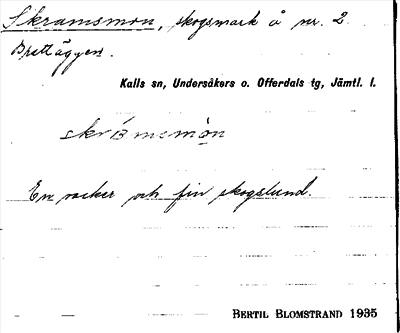 Skramsmon, skogsmark å nr. 2
Brattäggen.
Kalls sn, Undersåkers o. Offerdals tg, Jämtl. l.
En vacker och fin skogslund.
BERTIL BLOMSTRAND 1935